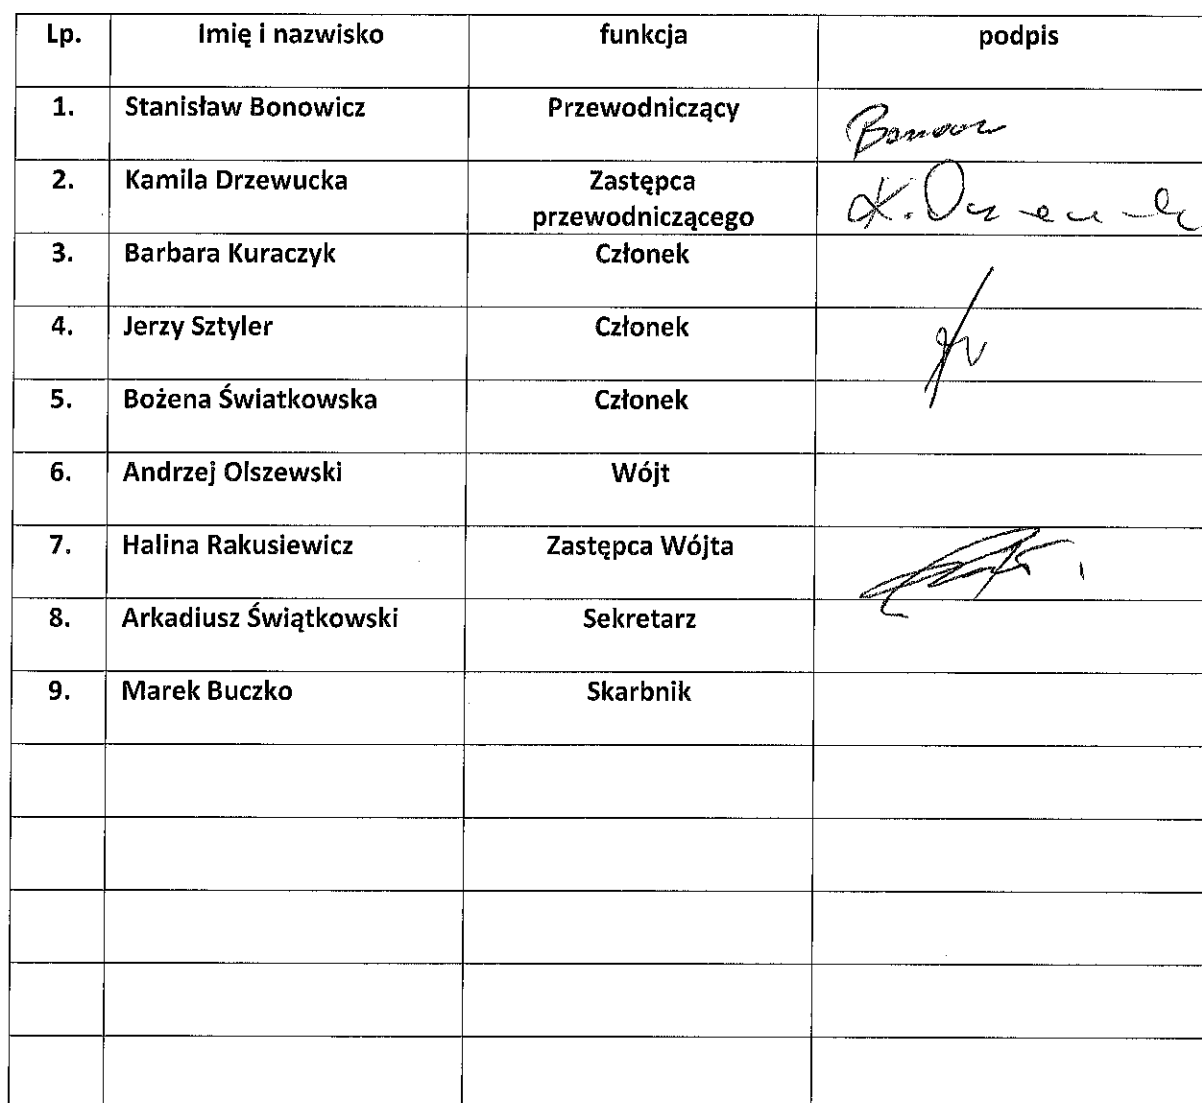 Lp. Imię i nazwisko funkcja podpis
1. Stanisław Bonowicz Przewodniczący
2. Kamila Drzewucka Zastępca
przewodniczącego
3. Barbara Kuraczyk Członek
4. Jerzy Sztyler Członek
5. Bożena Światkowska Członek
6. Andrzej Olszewski Wójt
7. Halina Rakusiewicz Zastępca Wójta
8. Arkadiusz Świątkowski Sekretarz
9. Marek Buczko Skarbnik